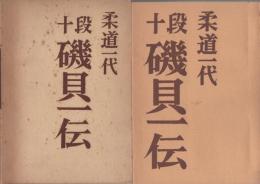 柔道一代
十段
磯貝一伝
柔道一代
十段
磯貝一伝